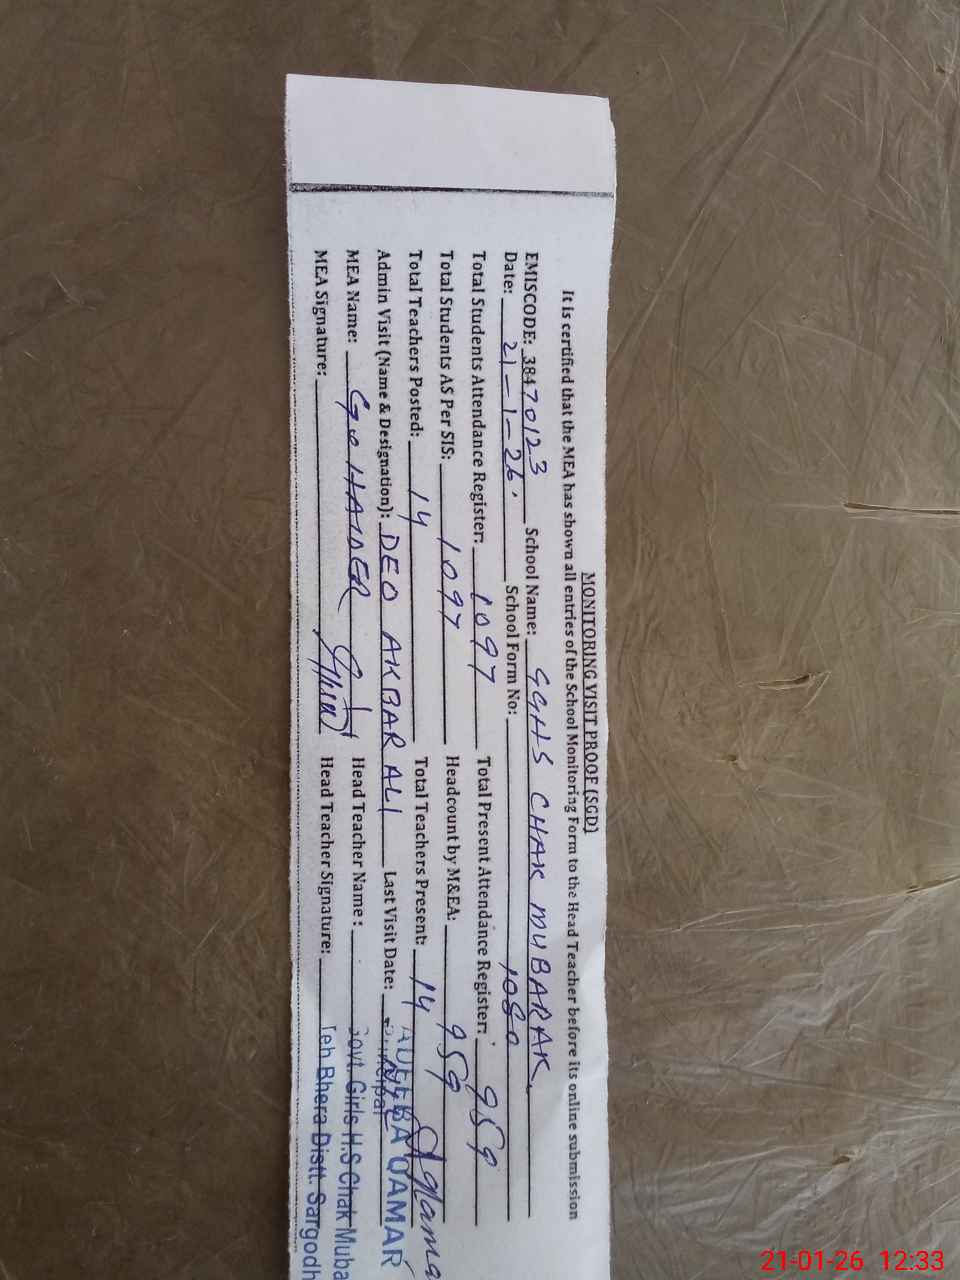 MONITORING VISIT PROOF (SGD)
It is certified that the MEA has shown all entries of the School Monitoring Form to the Head Teacher before its online submission
EMISCODE: 38470123 School Name: GGHS CHAK MUBARAK
Date: 21-1-26. School Form No: 1080
Total Students Attendance Register: 1097 Total Present Attendance Register: 959
Total Students AS Per SIS: 1097 Headcount by M&EA: 959
Total Teachers Posted: 14 Total Teachers Present: 14
Admin Visit (Name & Designation): DEO AKBAR ALI Last Visit Date:
MEA Name: HAIDER Head Teacher Name:
MEA Signature: Head Teacher Signature:
QAMAR
Principal
Govt. Girls H.S Chak Muba
Teh Bhera Distt. Sargodh
21-01-26 12:33